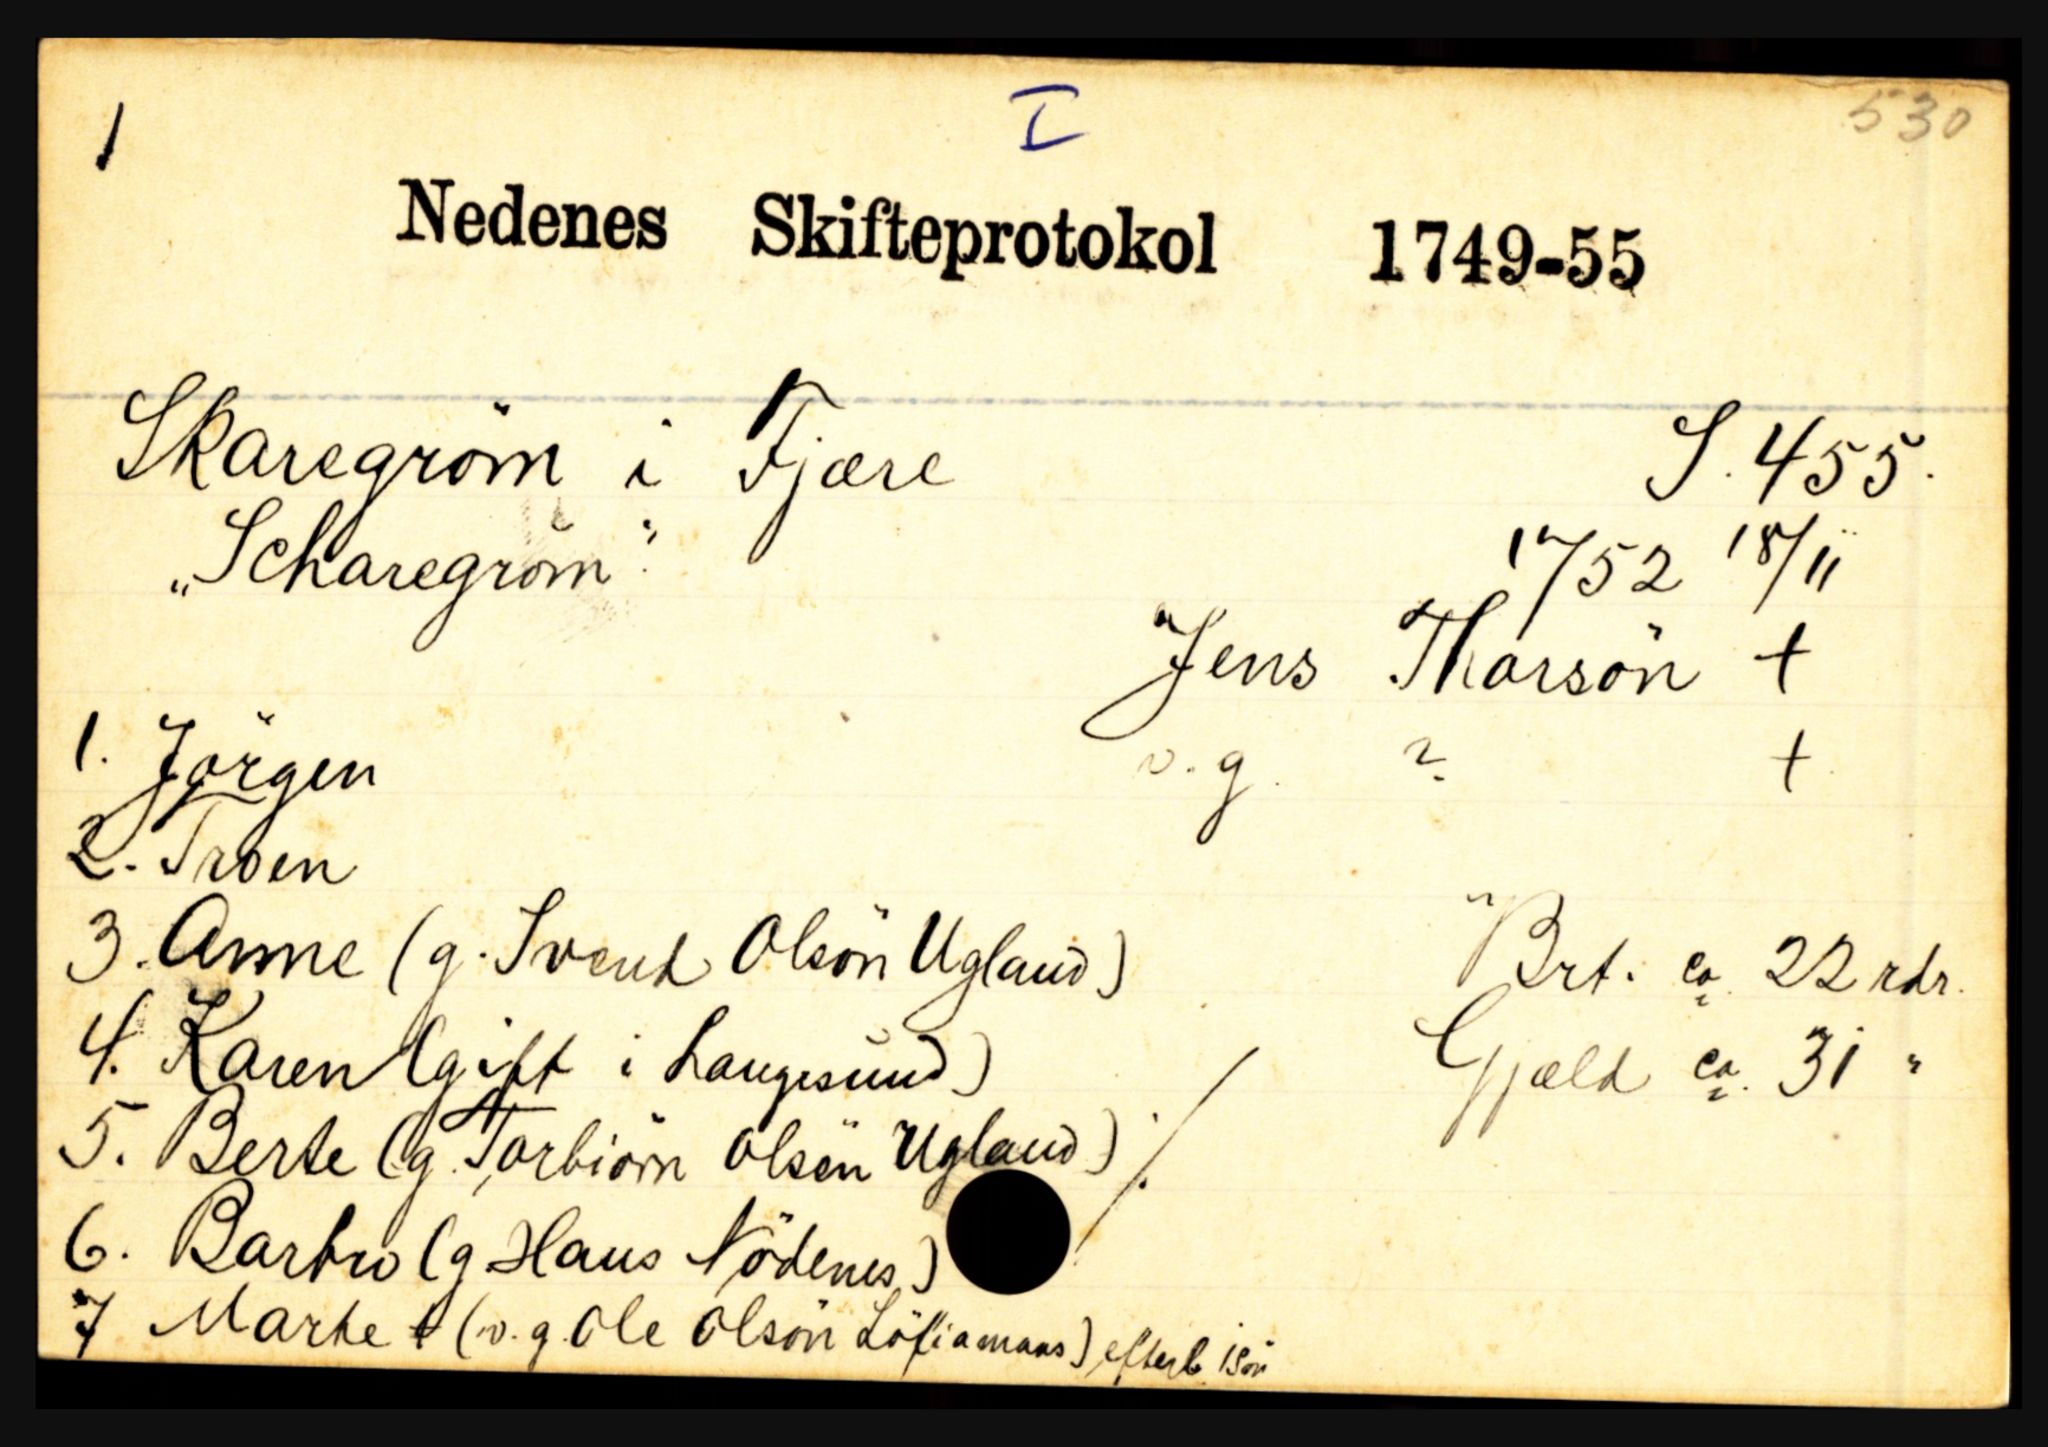 1 I 530
Nedenes Skifteprotokol 1749-55
Skaregröm i Fjære S. 455.
„Scharegröm“ 1752 18/11
Jens Tharsön †
v. g. ? †
1. Jörgen
2. Troen
3. Anne (g. Svend Olsön Ugland) Brt. ca. 22 rdr.
4. Karen (gift i Langesund) Gjæld ca. 31 "
5. Berte (g. Torbiörn Olsön Ugland) ./.
6. Barbro (g. Hans Nödenes)
7 Marte † (v. g. Ole Olsön) efterl. 1 sön